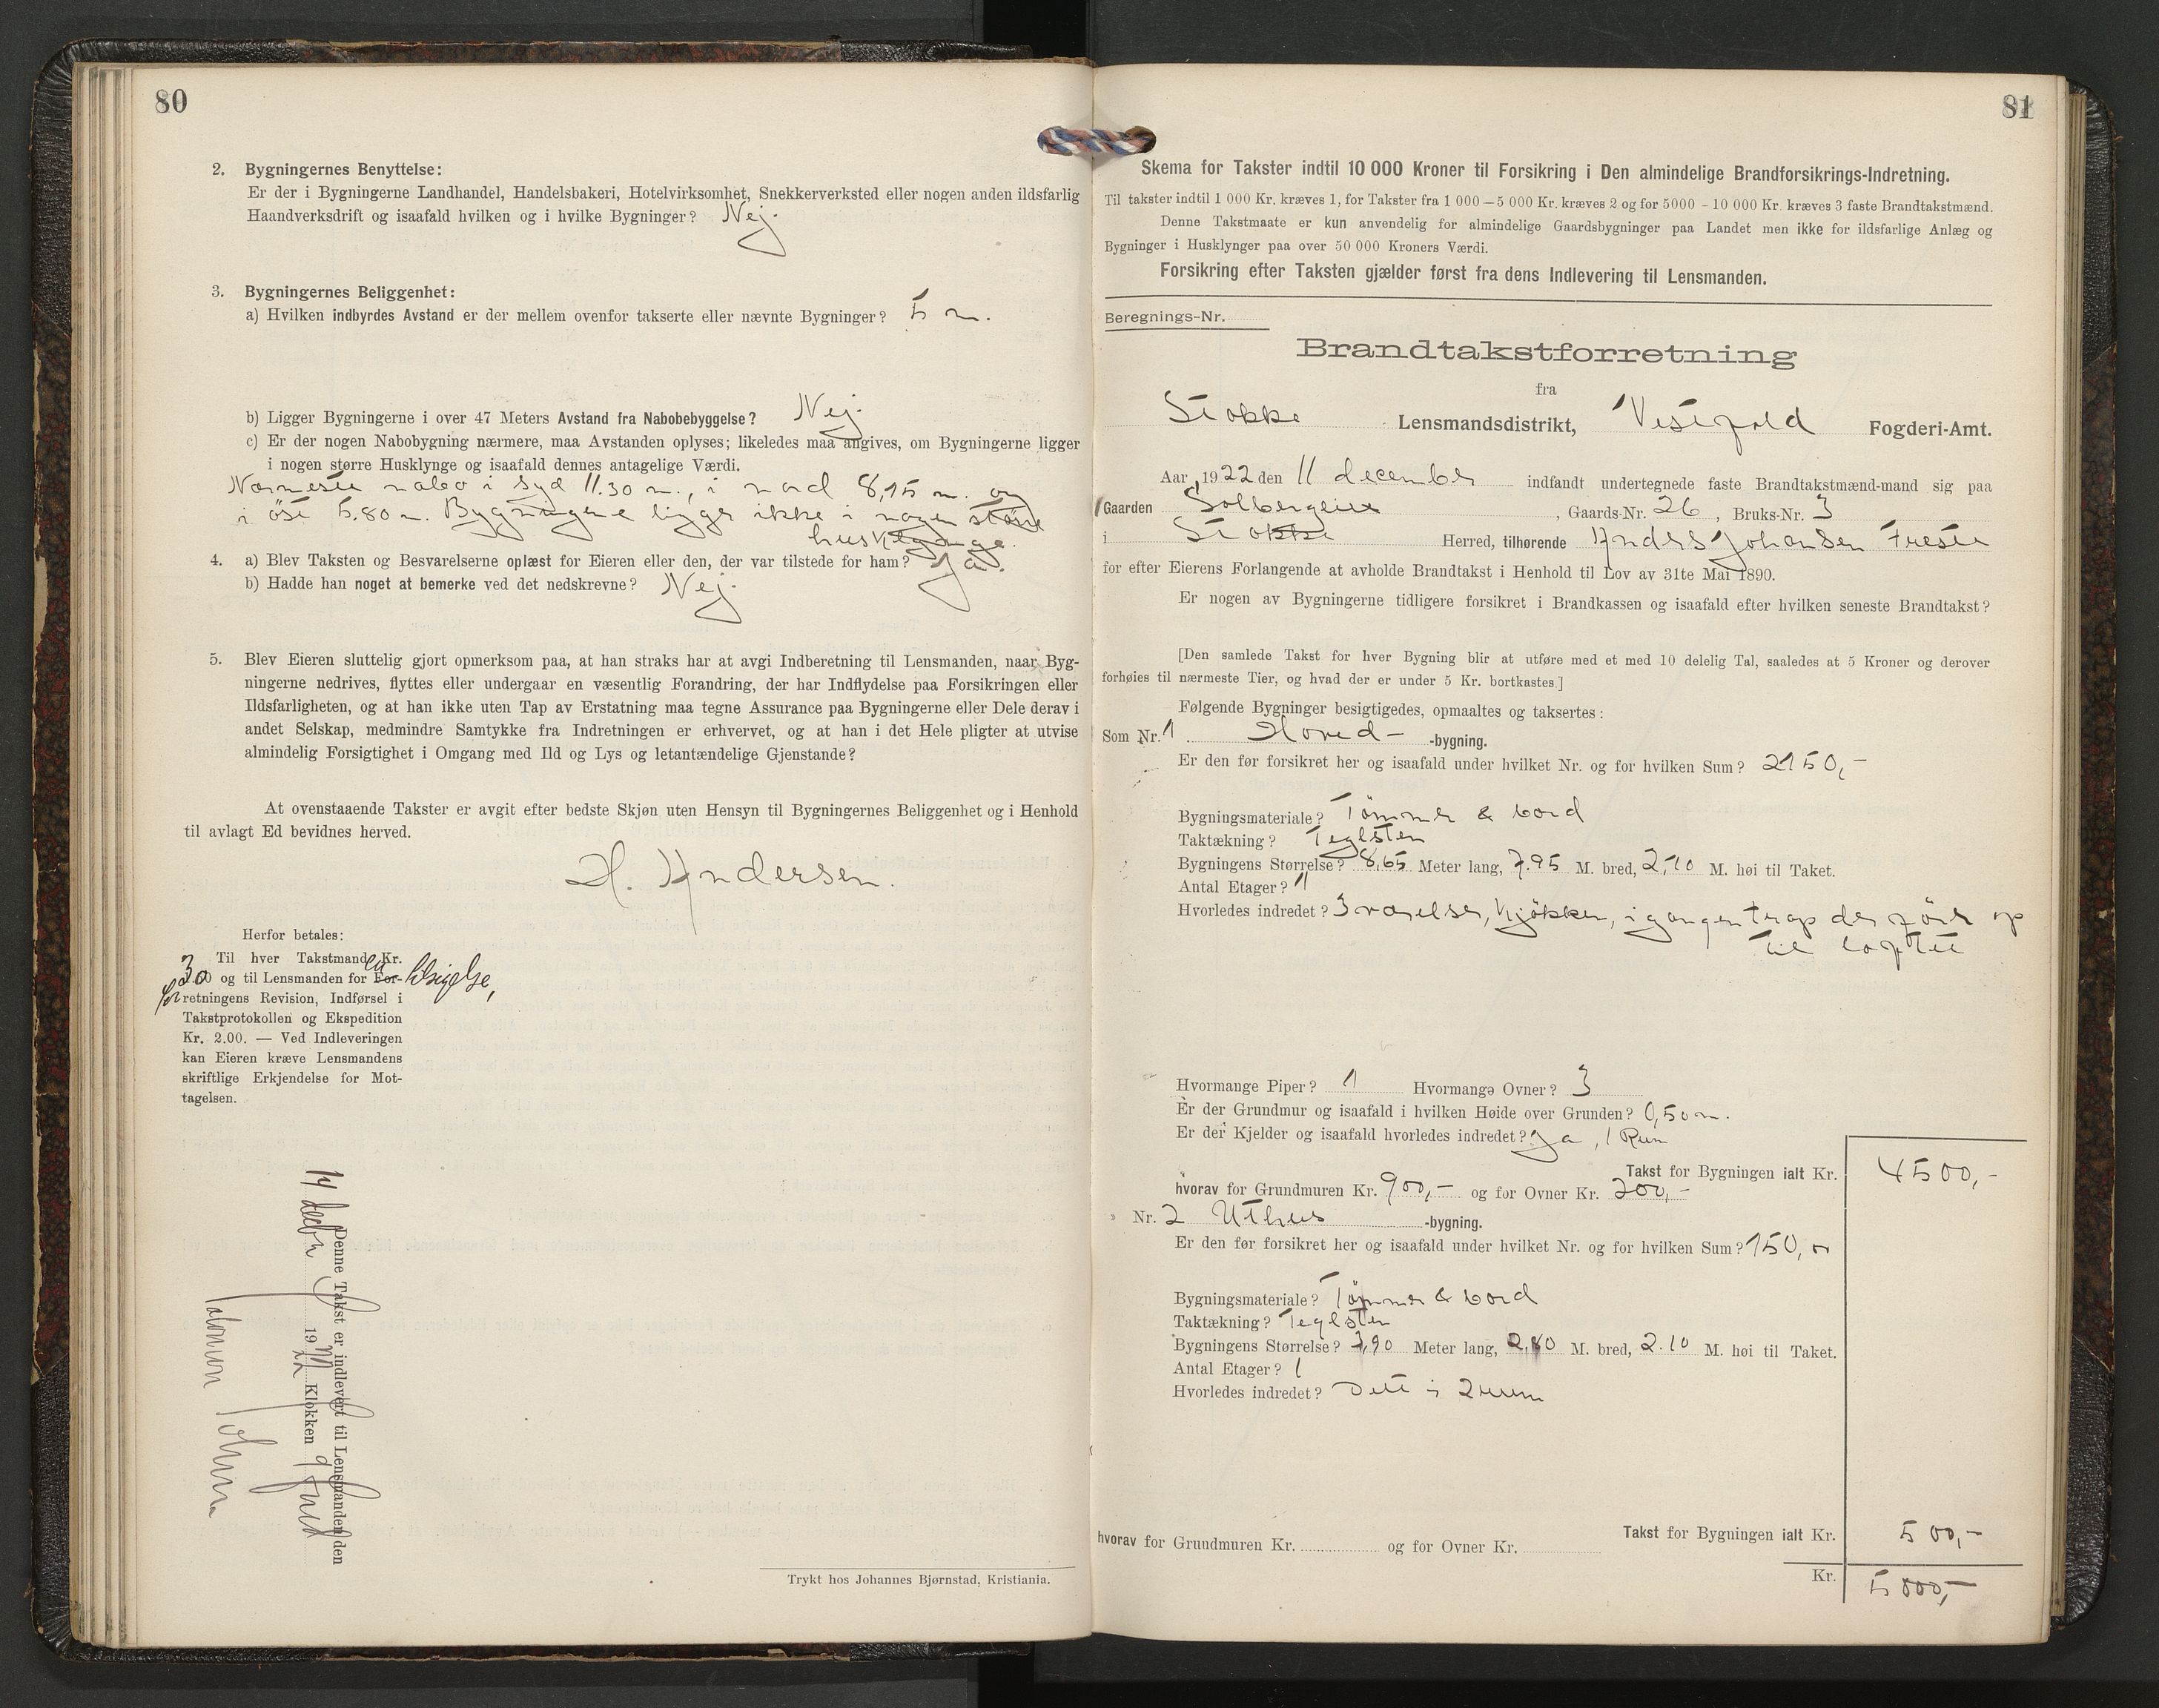 80
2. Bygningernes Benyttelse:
Er der i Bygningerne Landhandel, Handelsbakeri, Hotelvirksomhet, Snekkerverksted eller nogen anden ildsfarlig
Haandverksdrift og isaafald hvilken og i hvilke Bygninger? Nej.
3. Bygningernes Beliggenhet:
a) Hvilken indbyrdes Avstand er der mellem ovenfor takserte eller nævnte Bygninger? 5 m.
b) Ligger Bygningerne i over 47 Meters Avstand fra Nabobebyggelse? Nej.
c) Er der nogen Nabobygning nærmere, maa Avstanden oplyses; likeledes maa angives, om Bygningerne ligger
i nogen større Husklynge og isaafald dennes antagelige Værdi.
Nærmeste nabo i syd 11.30 m., i nord 8,15 m. og
i øst 5.80 m. Bygningene ligger ikke i nogen større
husklynge.
4. a) Blev Taksten og Besvarelserne oplæst for Eieren eller den, der var tilstede for ham? Ja.
b) Hadde han noget at bemerke ved det nedskrevne? Nej.
5. Blev Eieren sluttelig gjort opmerksom paa, at han straks har at avgi Indberetning til Lensmanden, naar Byg-
ningerne nedrives, flyttes eller undergaar en væsentlig Forandring, der har Indflydelse paa Forsikringen eller
Ildsfarligheten, og at han ikke uten Tap av Erstatning maa tegne Assurance paa Bygningerne eller Dele derav i
andet Selskap, medmindre Samtykke fra Indretningen er erhvervet, og at han i det Hele pligter at utvise
almindelig Forsigtighet i Omgang med Ild og Lys og letantændelige Gjenstande?
At ovenstaaende Takster er avgit efter bedste Skjøn uten Hensyn til Bygningernes Beliggenhet og i Henhold
til avlagt Ed bevidnes herved.
H. Andersen.
Herfor betales:
Til hver Takstmand Kr.
og til Lensmanden for For-
retningens Revision, Indførsel i
Takstprotokollen og Ekspedition
Kr. 2.00. — Ved Indleveringen
kan Eieren kræve Lensmandens
skriftlige Erkjendelse for Mot-
tagelsen.
Denne Takst er indlevert til Lensmanden den
14 decbr 1922 Klokken 9
Trykt hos Johannes Bjørnstad, Kristiania.
81
Skema for Takster indtil 10 000 Kroner til Forsikring i Den almindelige Brandforsikrings-Indretning.
Til takster indtil 1 000 Kr. kræves 1, for Takster fra 1 000 — 5 000 Kr. kræves 2 og for 5000 - 10 000 Kr. kræves 3 faste Brandtakstmænd.
Denne Takstmaate er kun anvendelig for almindelige Gaardsbygninger paa Landet men ikke for ildsfarlige Anlæg og
Bygninger i Husklynger paa over 50 000 Kroners Værdi.
Forsikring efter Taksten gjælder først fra dens Indlevering til Lensmanden.
Beregnings-Nr.
Brandtakstforretning
fra
Stokke Lensmandsdistrikt, Vestfold Fogderi-Amt.
Aar 1922 den 11 december indfandt undertegnede faste Brandtakstmænd-mand sig paa
Gaarden Solbergeie, Gaards-Nr. 26, Bruks-Nr. 3
i Stokke Herred, tilhørende Anders Johansen Freste
for efter Eierens Forlangende at avholde Brandtakst i Henhold til Lov av 31te Mai 1890.
Er nogen av Bygningerne tidligere forsikret i Brandkassen og isaafald efter hvilken seneste Brandtakst?
[Den samlede Takst for hver Bygning blir at utføre med et med 10 delelig Tal, saaledes at 5 Kroner og derover
forhøies til nærmeste Tier, og hvad der er under 5 Kr. bortkastes]
Følgende Bygninger besigtigedes, opmaaltes og taksertes:
Som Nr. 1 Hoved- -bygning.
Er den før forsikret her og isaafald under hvilket Nr. og for hvilken Sum? 2150,-
Bygningsmateriale? Tømmer & bord
Taktækning? Teglsten
Bygningens Størrelse? 8,65 Meter lang, 7.95 M. bred, 2,70 M. høi til Taket.
Antal Etager? 1
Hvorledes indredet? 3 værelser, kjøkken, i gangen trap der fører op
til loftet
Hvormange Piper? 1 Hvormange Ovner? 3
Er der Grundmur og isaafald i hvilken Høide over Grunden? 0,50 m.
Er der Kjelder og isaafald hvorledes indredet? Ja, 1 Rum
Takst for Bygningen ialt Kr. 4500,-
hvorav for Grundmuren Kr. 900,- og for Ovner Kr. 200,-
Nr. 2 Uthus -bygning.
Er den før forsikret her og isaafald under hvilket Nr. og for hvilken Sum? 150,
Bygningsmateriale? Tømmer & bord
Taktækning? Teglsten
Bygningens Størrelse? 7,90 Meter lang, 2,80 M. bred, 2.10 M. høi til Taket.
Antal Etager? 1
Hvorledes indredet? Delt i 2 rum
Takst for Bygningen ialt Kr. 500,-
hvorav for Grundmuren Kr. og for Ovner Kr.
Kr. 5000,-